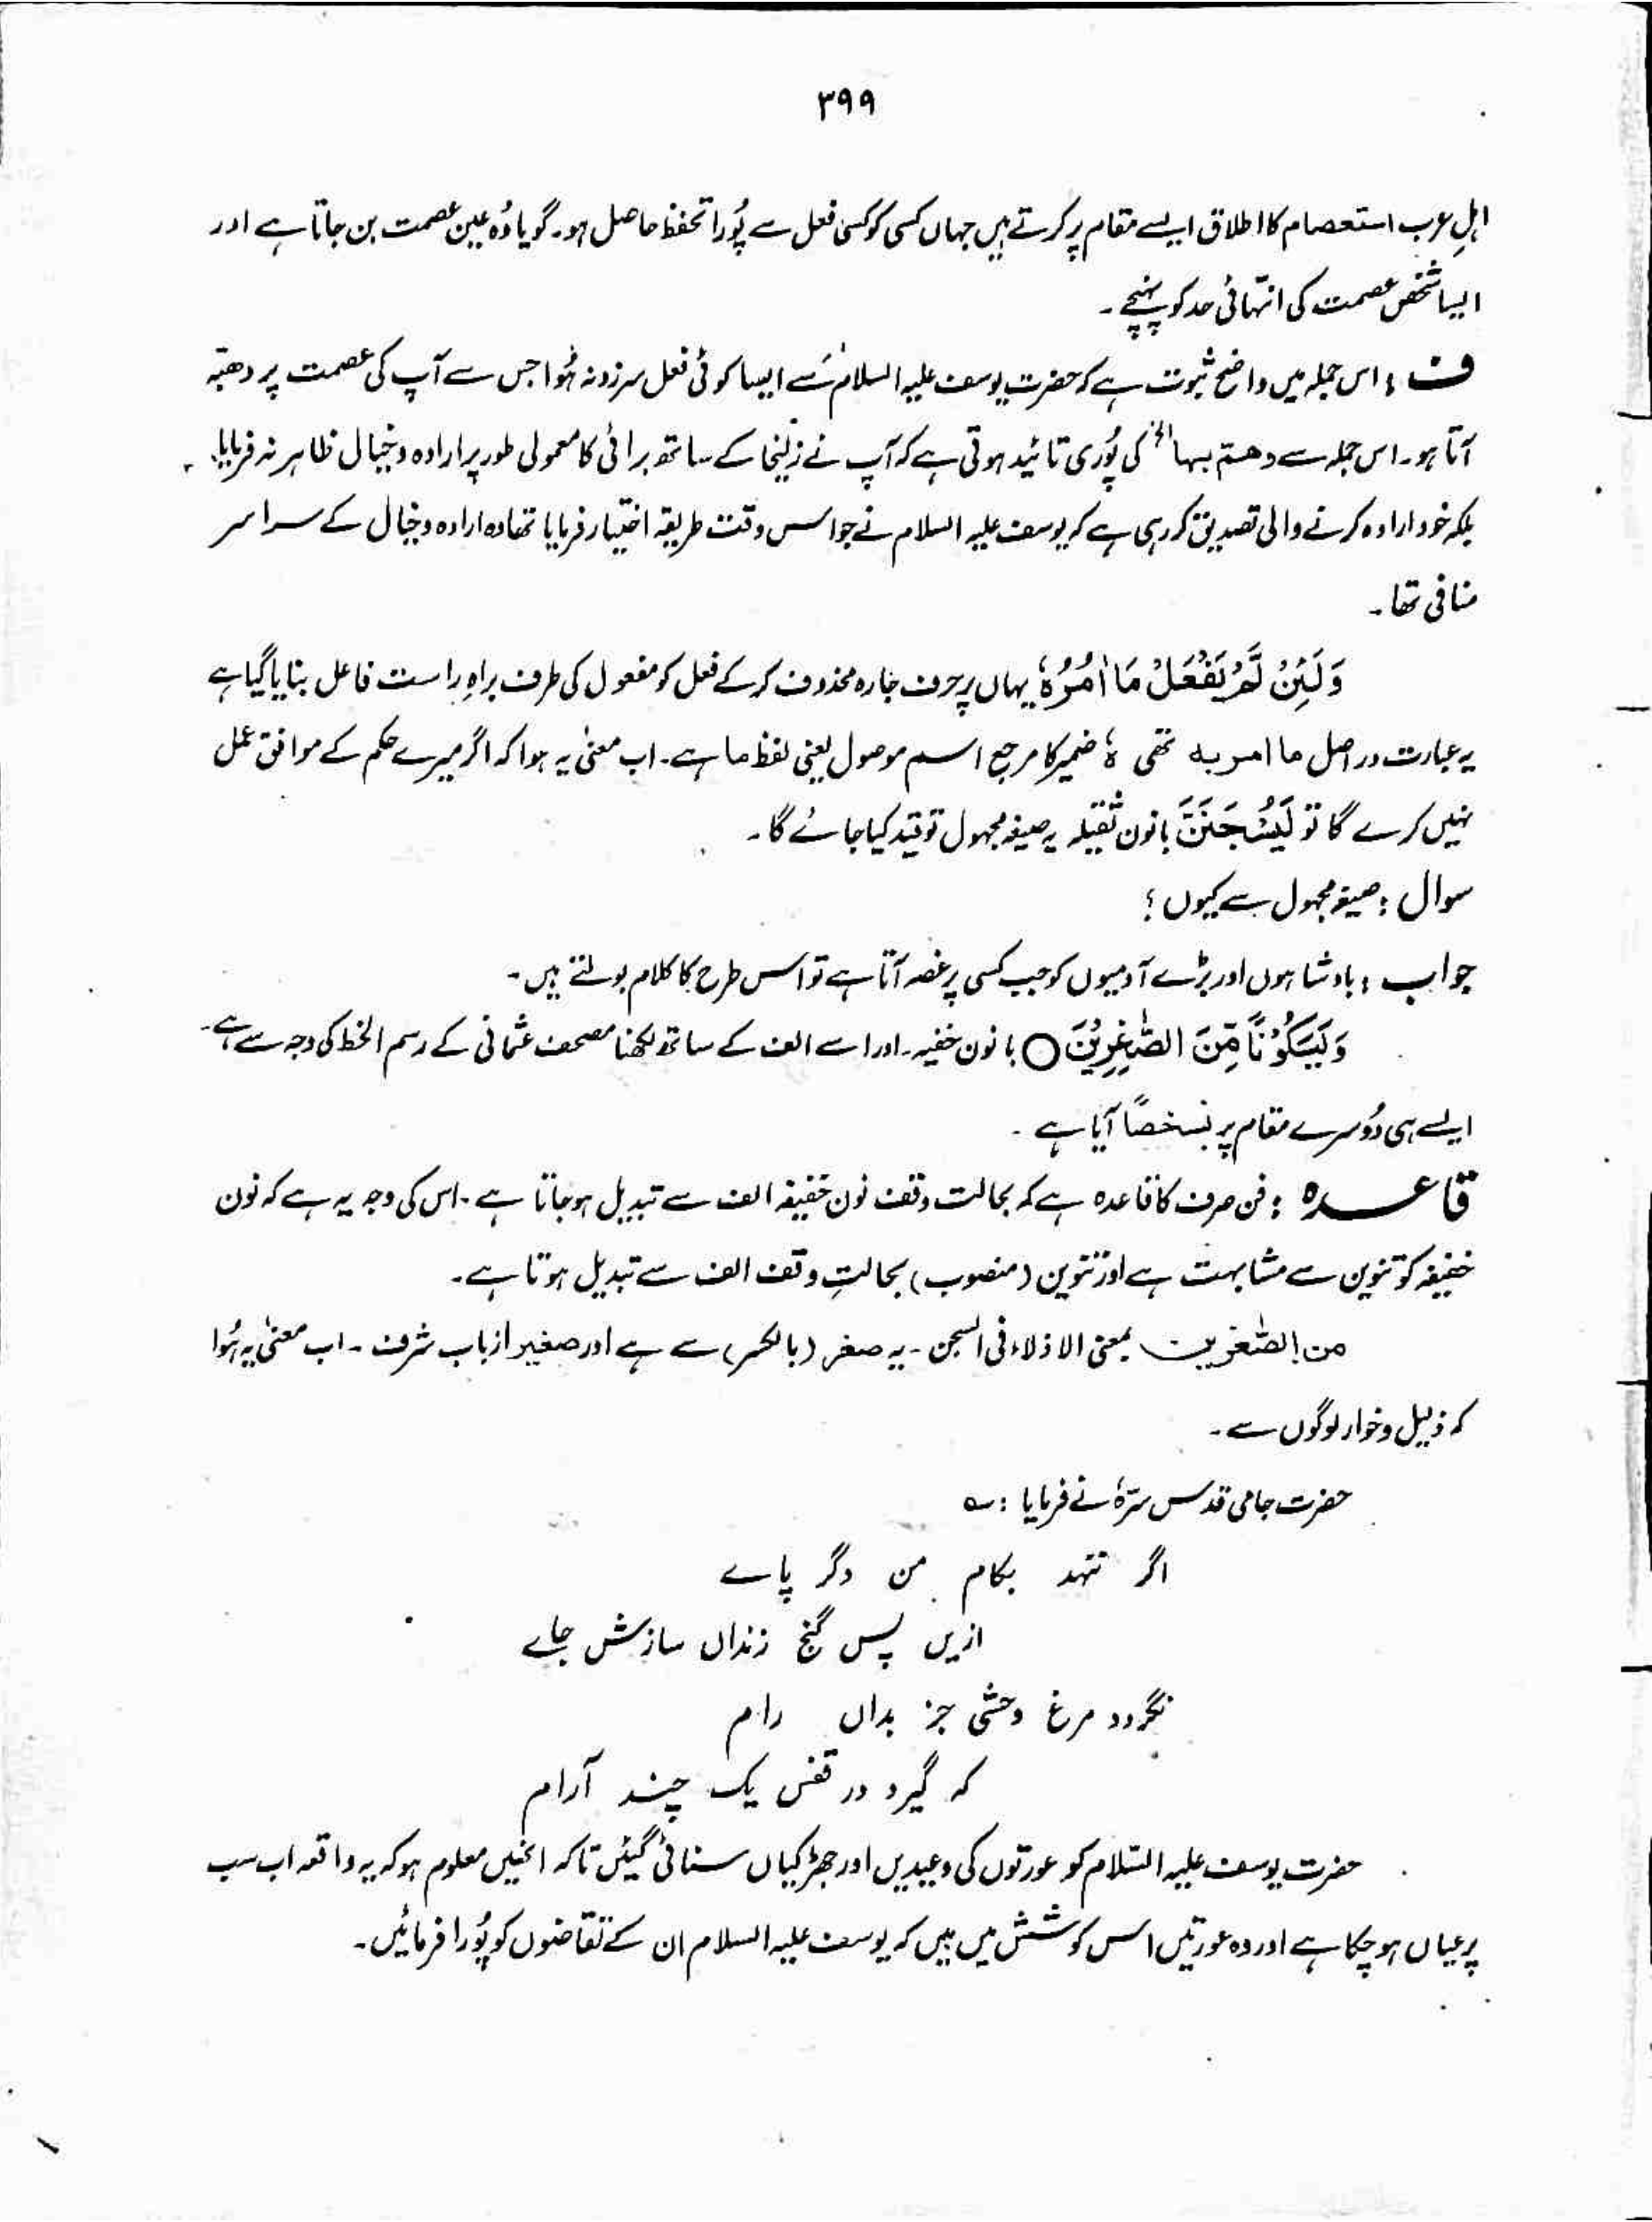 ۳۹۹
اہلِ عرب استعصام کا اطلاق ایسے مقام پر کرتے ہیں جہاں کسی کو کسی فعل سے پُورا تحفظ حاصل ہو۔ گویا وُہ عین عصمت بن جاتا ہے اور
ایسا شخص عصمت کی انتہائی حد کو پہنچے۔
ف : اس جملہ میں واضح ثبوت ہے کہ حضرت یوسف علیہ السلام سے ایسا کوئی فعل سرزد نہ ہُوا جس سے آپ کی عصمت پر دھبّہ
آتا ہو۔ اس جملہ سے وھمّ بہا الخ کی پُوری تائید ہوتی ہے کہ آپ نے زلیخا کے ساتھ برائی کا معمولی طور پر ارادہ و خیال ظاہر نہ فرمایا۔
بلکہ خود ارادہ کرنے والی تصدیق کر رہی ہے کہ یوسف علیہ السلام نے جو اس وقت طریقہ اختیار فرمایا تھا وہ ارادہ و خیال کے سراسر
منافی تھا۔
وَلَئِنْ لَّمْ یَفْعَلْ مَا اٰمُرُہٗ یہاں پر حرف جارہ محذوف کر کے فعل کو مفعول کی طرف براہِ راست فاعل بنایا گیا ہے
یہ عبارت دراصل ما امر بہ تھی ہٗ ضمیر کا مرجع اسم موصول یعنی لفظ ما ہے۔ اب معنیٰ یہ ہوا کہ اگر میرے حکم کے موافق عمل
نہیں کرے گا تو لَیُسْجَنَنَّ بانون ثقیلہ یہ صیغہ مجہول تو قید کیا جائے گا۔
سوال : صیغہ مجہول سے کیوں ؟
جواب : بادشاہوں اور بڑے آدمیوں کو جب کسی پر غصہ آتا ہے تو اس طرح کا کلام بولتے ہیں۔
وَلَیَکُوْنًا مِّنَ الصّٰغِرِیْنَ ○ بانون خفیہ۔ اور اسے الف کے ساتھ لکھنا مصحف عثمانی کے رسم الخط کی وجہ سے ہے۔
ایسے ہی دُوسرے مقام پر آیا ہے۔
قاعدہ : فن صرف کا قاعدہ ہے کہ بحالت وقف نون خفیفہ الف سے تبدیل ہو جاتا ہے۔ اس کی وجہ یہ ہے کہ نون
خفیفہ کو تنوین سے مشابہت ہے اور تنوین (منصوب) بحالتِ وقف الف سے تبدیل ہوتا ہے۔
من الصّٰغرین بمعنی الاذلاء فی السجن۔ یہ صغر (بالکسر) سے ہے اور صغیر از باب شرف۔ اب معنیٰ یہ ہُوا
کہ ذلیل و خوار لوگوں سے۔
حضرت جامی قدس سرّہٗ نے فرمایا : ؎
اگر ننہد بکام من دگر پاے
ازیں پس گنج زنداں سازش جاے
نگردد مرغ وحشی جز بداں رام
کہ گیرد در قفس یک چند آرام
حضرت یوسف علیہ السّلام کو عورتوں کی وعیدیں اور جھڑکیاں سنائی گئیں تاکہ انھیں معلوم ہو کہ یہ واقعہ اب سب
پر عیاں ہو چکا ہے اور وہ عورتیں اس کوشش میں ہیں کہ یوسف علیہ السلام ان کے تقاضوں کو پُورا فرمائیں۔